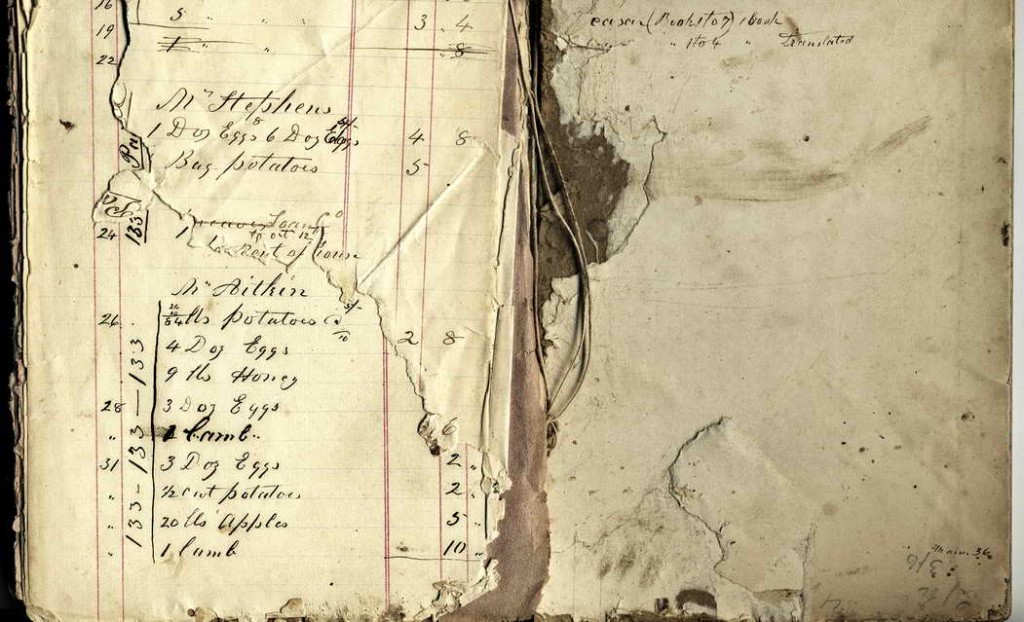 16
19 5 " " 3 4
" " 8
22
Mr Stephens
1 Doz Eggs 6 Doz Eggs 4 8
Bag potatoes 5
24 133 1 Loan
Rent of house
Mr Aitkin
26 lbs potatoes 2 8
4 Doz Eggs
9 lbs Honey
28 3 Doz Eggs
" 1 lamb 6
31 3 Doz Eggs 2 "
" ½ cwt potatoes 2 "
" 20 lbs Apples 5 "
" 1 lamb 10 "
133 - 133 - 133
(Bookstoz) 1 book
" 1 to 4 " Translated
36